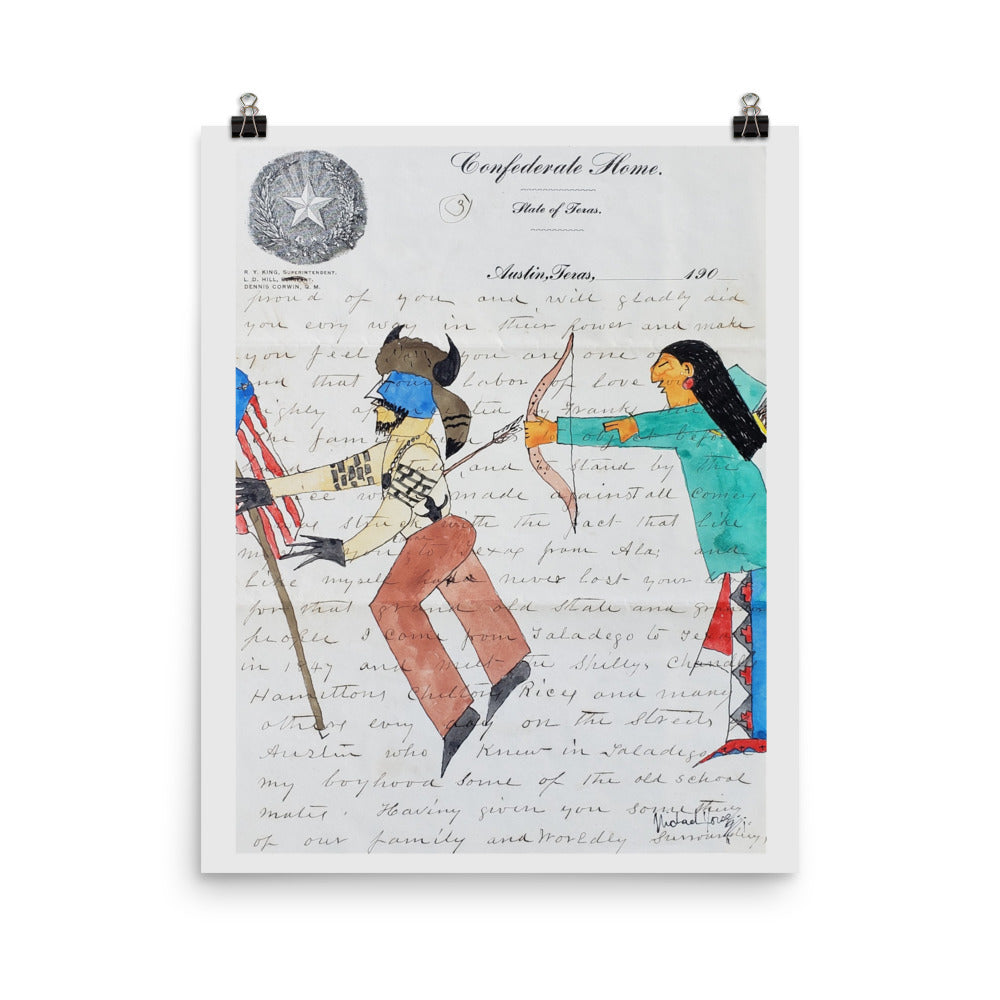 Confederate Home.
3
State of Texas.
R. Y. KING, SUPERINTENDENT.
L. D. HILL,
DENNIS CORWIN, Q. M.
Austin, Texas, 190
proud of you and will gladly did
you evry way in their power and make
you feel you are one of
and that your labor of love
highly by Frank
the family object before
and stand by the
made against all comers
struck with the fact that like
you to Texas from Ala; and
Like myself have never lost your
for that grand old state and grand
people I come from Taladego to Texas
in 1847 and meet the Shelly, Chandler
Hamiltons Chiltons Rices and many
others evry day on the Streets
Austin who I knew in Taladego
my boyhood some of the old school
mates. Having given you some thing
of our family and Worldly Surrounding,